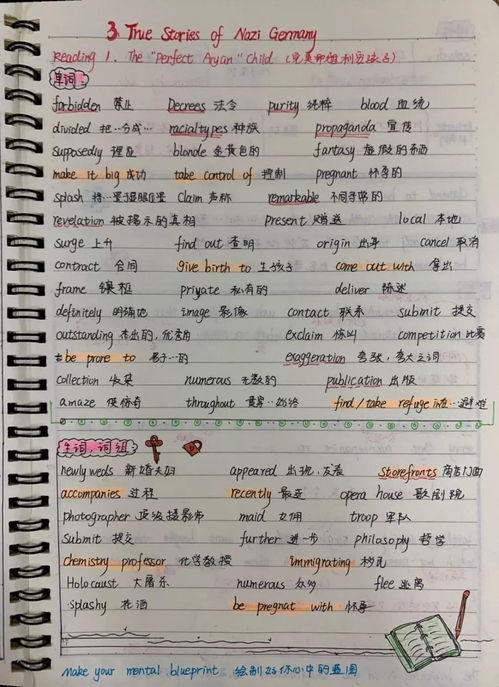 3. True Stories of Nazi Germany
Reading 1. The "Perfect Aryan" Child (完美雅利安孩子)
单词
forbidden 禁止 Decrees 法令 purity 纯粹 blood 血统
divided 把…分成… racial types 种族 propaganda 宣传
supposedly 理应 blonde 金黄色的 fantasy 虚假的东西
make it big 成功 take control of 控制 pregnant 怀孕的
splash Claim 声称 remarkable 不同寻常的
revelation 被揭示的真相 present 赠送 local 本地
surge 上升 find out 查明 origin 出身 cancel 取消
contract 合同 give birth to 生孩子 come out with 拿出
frame 镜框 private 私有的 deliver 陈述
definitely 明确地 image 影像 contact 联系 submit 提交
outstanding 杰出的, 优秀的 exclaim 惊叫 competition 比赛
be prone to 易于…的 exaggeration 夸张, 夸大之词
collection 收集 numerous 无数的 publication 出版
amaze 使惊奇 throughout find/take refuge in 在…避难
生词 词组
newly weds 新婚夫妇 appeared 出现, storefronts 商店门面
accompanies 过程 recently 最近 opera house 歌剧院
photographer 顶级摄影师 maid 女佣 troop 军队
Submit 提交 further 进一步 philosophy 哲学
chemistry professor 化学教授 immigrating 移民
Holocaust 大屠杀 numerous 众多 flee 逃离
splashy be pregnat with 怀孕
Make your mental blueprint 绘制好你心中的蓝图